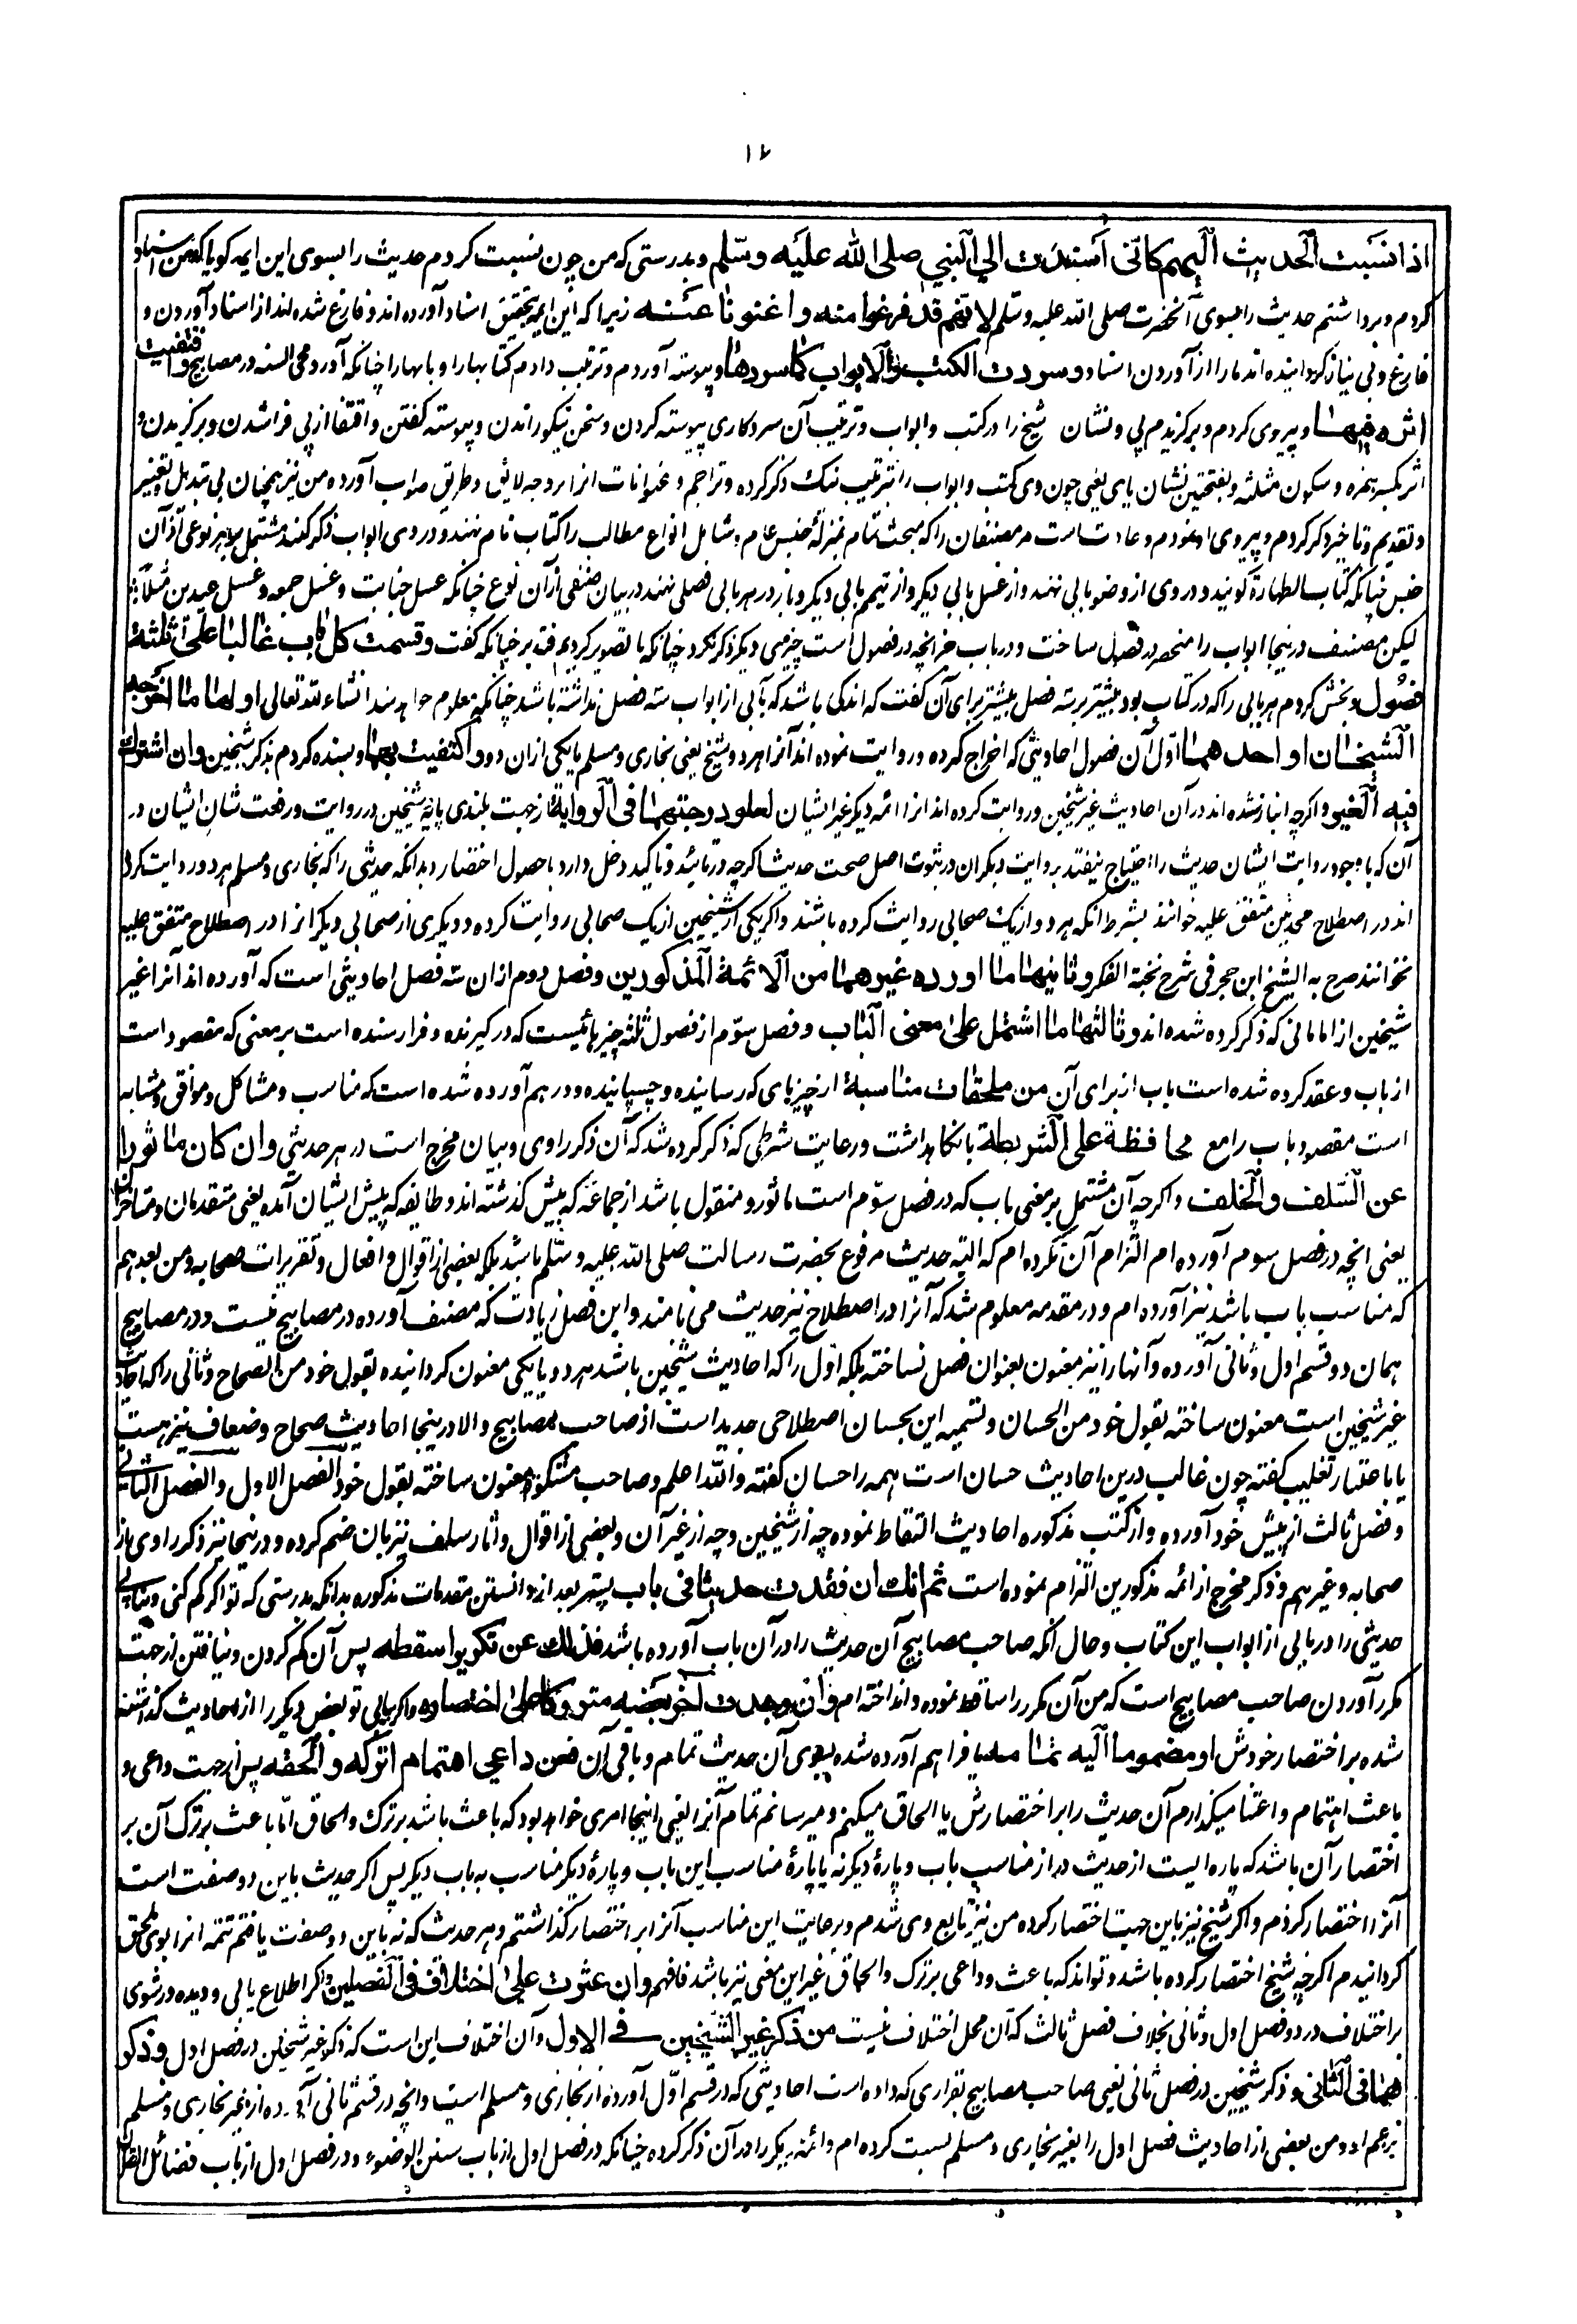 ۱۶
اذا نسبت الحدیث الیهم کانی اسندت الی النبی صلی الله علیه وسلم و بدرستی که من چون نسبت کردم حدیث را بسوی این ایمه گویا که من اسناد
کردم و برداشتم حدیث را بسوی آنحضرت صلی الله علیه وسلم لانهم قد فرغوا منه واغنونا عنه زیرا که این ایمه بتحقیق اسناد آورده اند و فارغ شده اند از اسناد آوردن و
فارغ و بی نیاز گردانیده اند ما را از آوردن اسناد وسردت الکتب والابواب کما سردها و پیوسته آوردم و ترتیب دادم کتابها را و بابها را چنانکه آورد محی السنه در مصابیح واقتفیت
اثره فیها و پیروی کردم و برگزیدم پی و نشان شیخ را در کتب و ابواب و ترتیب آن سرد کاری پیوسته کردن و سخن نیکو راندن و پیوسته گفتن و اقتفا از پی فرا شدن و برگزیدن و
اثر بکسر همزه و سکون مثلثه و بفتحتین نشان پای یعنی چون وی کتب و ابواب را بترتیب نیک ذکر کرده و تراجم و عنوانات انرا بر وجه لائق و طریق صواب آورده من نیز همچنان بی تبدیل و تغییر
و تقدیم و تاخیر ذکر کردم و پیروی او نمودم و عادت است مر مصنفان را که مبحث تمام بمنزلۀ جنس عام و شامل انواع مطالب را کتاب نام نهند و در وی ابواب ذکر کنند مشتمل بر هر نوعی از آن
جنس چنانکه کتاب الطهارة گویند و در وی از وضو بابی نهند و از غسل بابی دیگر و از تیمم بابی دیگر و باز در هر بابی فصلی نهند در بیان صنفی از آن نوع چنانکه غسل جنابت و غسل جمعه و غسل عیدین مثلا
لیکن مصنف درینجا ابواب را منحصر در فصول ساخت و در باب جز انچه در فصول است چیزی دیگر ذکر نکرد چنانکه ما تصویر کردیم فتدبر چنانکه گفت وقسمت کل باب غالبا علی ثلثة
فصول و بخش کردم هر بابی را که در کتاب بود بیشتر بر سه فصل بیشتر برای آن گفت که اندکی باشد که بابی از ابواب سه فصل نداشته باشد چنانکه معلوم خواهد شد انشاء الله تعالی اولها ما اخرجه
الشیخان او احدهما اول آن فصول احادیثی که اخراج کرده و روایت نموده اند آنرا هر دو شیخ یعنی بخاری و مسلم یا یکی ازان دو واکتفیت بهما و بسنده کردم بذکر شیخین وان اشترک
فیه الغیر و اگرچه انباز شده اند در آن احادیث غیر شیخین و روایت کرده اند انرا ائمه دیگر غیر ایشان لعلو درجتهما فی الروایة از جهت بلندی پایۀ شیخین در روایت و رفعت شان ایشان در
آن که با وجود روایت ایشان حدیث را احتیاج نیفتد بروایت دیگران در ثبوت اصل صحت حدیث اگرچه در تائید و تاکید دخل دارد با حصول اختصار و بدانکه حدیثی را که بخاری و مسلم هر دو روایت کرده
اند در اصطلاح محدثین متفق علیه خوانند بشرط انکه هر دو از یک صحابی روایت کرده باشند و اگر یکی از شیخین از یک صحابی روایت کرده و دیگری از صحابی دیگر انرا در اصطلاح متفق علیه
نخوانند صرح به الشیخ ابن حجر فی شرح نخبة الفکر وثانیها ما اورده غیرهما من الائمة المذکورین و فصل دوم ازان سه فصل احادیثی است که آورده اند آنرا غیر
شیخین از امامانی که ذکر کرده شده اند وثالثها ما اشتمل علی معنی الباب و فصل سوم از فصول ثلثه چیزهائیست که در گیرنده و فرا رسنده است بر معنی که مقصود است
از باب و عقد کرده شده است باب از برای آن من ملحقات مناسبة از چیزهای که رسانیده و چسپانیده و در هم آورده شده است که مناسب و مشاکل و موافق و مشابه
است مقصود باب را مع محافظة علی الشریطة با نگاهداشت و رعایت شرطی که ذکر کرده شد که آن ذکر راوی و بیان مخرج است در هر حدیثی وان کان ماثورا
عن السلف والخلف و اگرچه آن مشتمل بر معنی باب که در فصل سوم است ماثور و منقول باشد از جماعۀ که پیش گذشته اند و طایفه که پیش ایشان آمده یعنی متقدمان و متاخران
یعنی انچه در فصل سوم آورده ام التزام آن نکرده ام که البته حدیث مرفوع بحضرت رسالت صلی الله علیه وسلم باشد بلکه بعضی از اقوال و افعال و تقریرات صحابه و من بعدهم
که مناسب باب باشد نیز آورده ام و در مقدمه معلوم شد که آنرا در اصطلاح نیز حدیث می نامند و این فصل زیادت که مصنف آورده در مصابیح نیست و در مصابیح
همان دو قسم اول و ثانی آورده و آنها را نیز معنون بعنوان فصل نساخته بلکه اول را که احادیث شیخین باشد هر دو یا یکی معنون گردانیده بقول خود من الصحاح و ثانی را که احادیث
غیر شیخین است معنون ساخته بقول خود من الحسان و تسمیه این بحسان اصطلاحی جدید است از صاحب مصابیح والا درینجا احادیث صحاح و ضعاف نیز هست
یا باعتبار تغلیب گفته چون غالب درین احادیث حسان است همه را حسان گفته والله اعلم و صاحب مشکوة معنون ساخته بقول خود الفصل الاول والفصل الثانی
و فصل ثالث از پیش خود آورده و از کتب مذکوره احادیث التقاط نموده چه از شیخین و چه از غیر آن و بعضی از اقوال و آثار سلف نیز بان ضم کرده و درینجا نیز ذکر راوی از
صحابه و غیرهم و ذکر مخرج از ائمه مذکورین التزام نموده است ثم انک ان فقدت حدیثا فی باب پستر بعد از دانستن مقدمات مذکوره بدانکه بدرستی که تو اگر گم کنی و نیابی
حدیثی را در بابی از ابواب این کتاب و حال انکه صاحب مصابیح آن حدیث را در آن باب آورده باشد فذلک عن تکریر اسقطه پس آن گم کردن و نیافتن از جهت
مکرر آوردن صاحب مصابیح است که من آن مکرر را ساقط نموده و انداخته ام وان وجدت آخر بعضه متروکا علی اختصاره و اگر بیابی تو بعض دیگر را از احادیث گذاشته
شده بر اختصار خودش او مضموما الیه تمامه یا فراهم آورده شده بسوی آن حدیث تمام و باقی آن فعن داعی اهتمام اترکه والحقه پس از جهت داعی و
باعث اهتمام و اعتنا میگذارم آن حدیث را بر اختصارش یا الحاق میکنم و میرسانم تمام آنرا یعنی اینجا امری خواهد بود که باعث باشد بر ترک و الحاق اما باعث بر ترک آن بر
اختصار آن باشد که پاره ایست از حدیث دراز مناسب باب و پارۀ دیگر نه یا پارۀ مناسب این باب و پارۀ دیگر مناسب به باب دیگر پس اگر حدیث باین دو صفت است
آنرا اختصار کردم و اگر شیخ نیز باین جهت اختصار کرده من نیز تابع وی شدم و برعایت این مناسب آنرا بر اختصار گذاشتم و هر حدیث که نه باین دو صفت یافتم تتمه انرا بوی ملحق
گردانیدم اگرچه شیخ اختصار کرده باشد و تواند که باعث و داعی بر ترک و الحاق غیر این معنی نیز باشد فافهم وان عثرت علی اختلاف فی الفصلین و اگر اطلاع یابی و دیده ور شوی
بر اختلاف در دو فصل اول و ثانی بخلاف فصل ثالث که آن محل اختلاف نیست من ذکر غیر الشیخین فی الاول و آن اختلاف این است که ذکر غیر شیخین در فصل اول وذکر
هما فی الثانی و ذکر شیخین در فصل ثانی یعنی صاحب مصابیح بقراری که داده است احادیثی که در قسم اول آورده از بخاری و مسلم است و انچه در قسم ثانی آورده از غیر بخاری و مسلم
بزعم او و من بعضی از احادیث فصل اول را بغیر بخاری و مسلم نسبت کرده ام و ائمه دیگر را در آن ذکر کرده چنانکه در فصل اول از باب سنن الوضوء و در فصل اول از باب فضائل القران